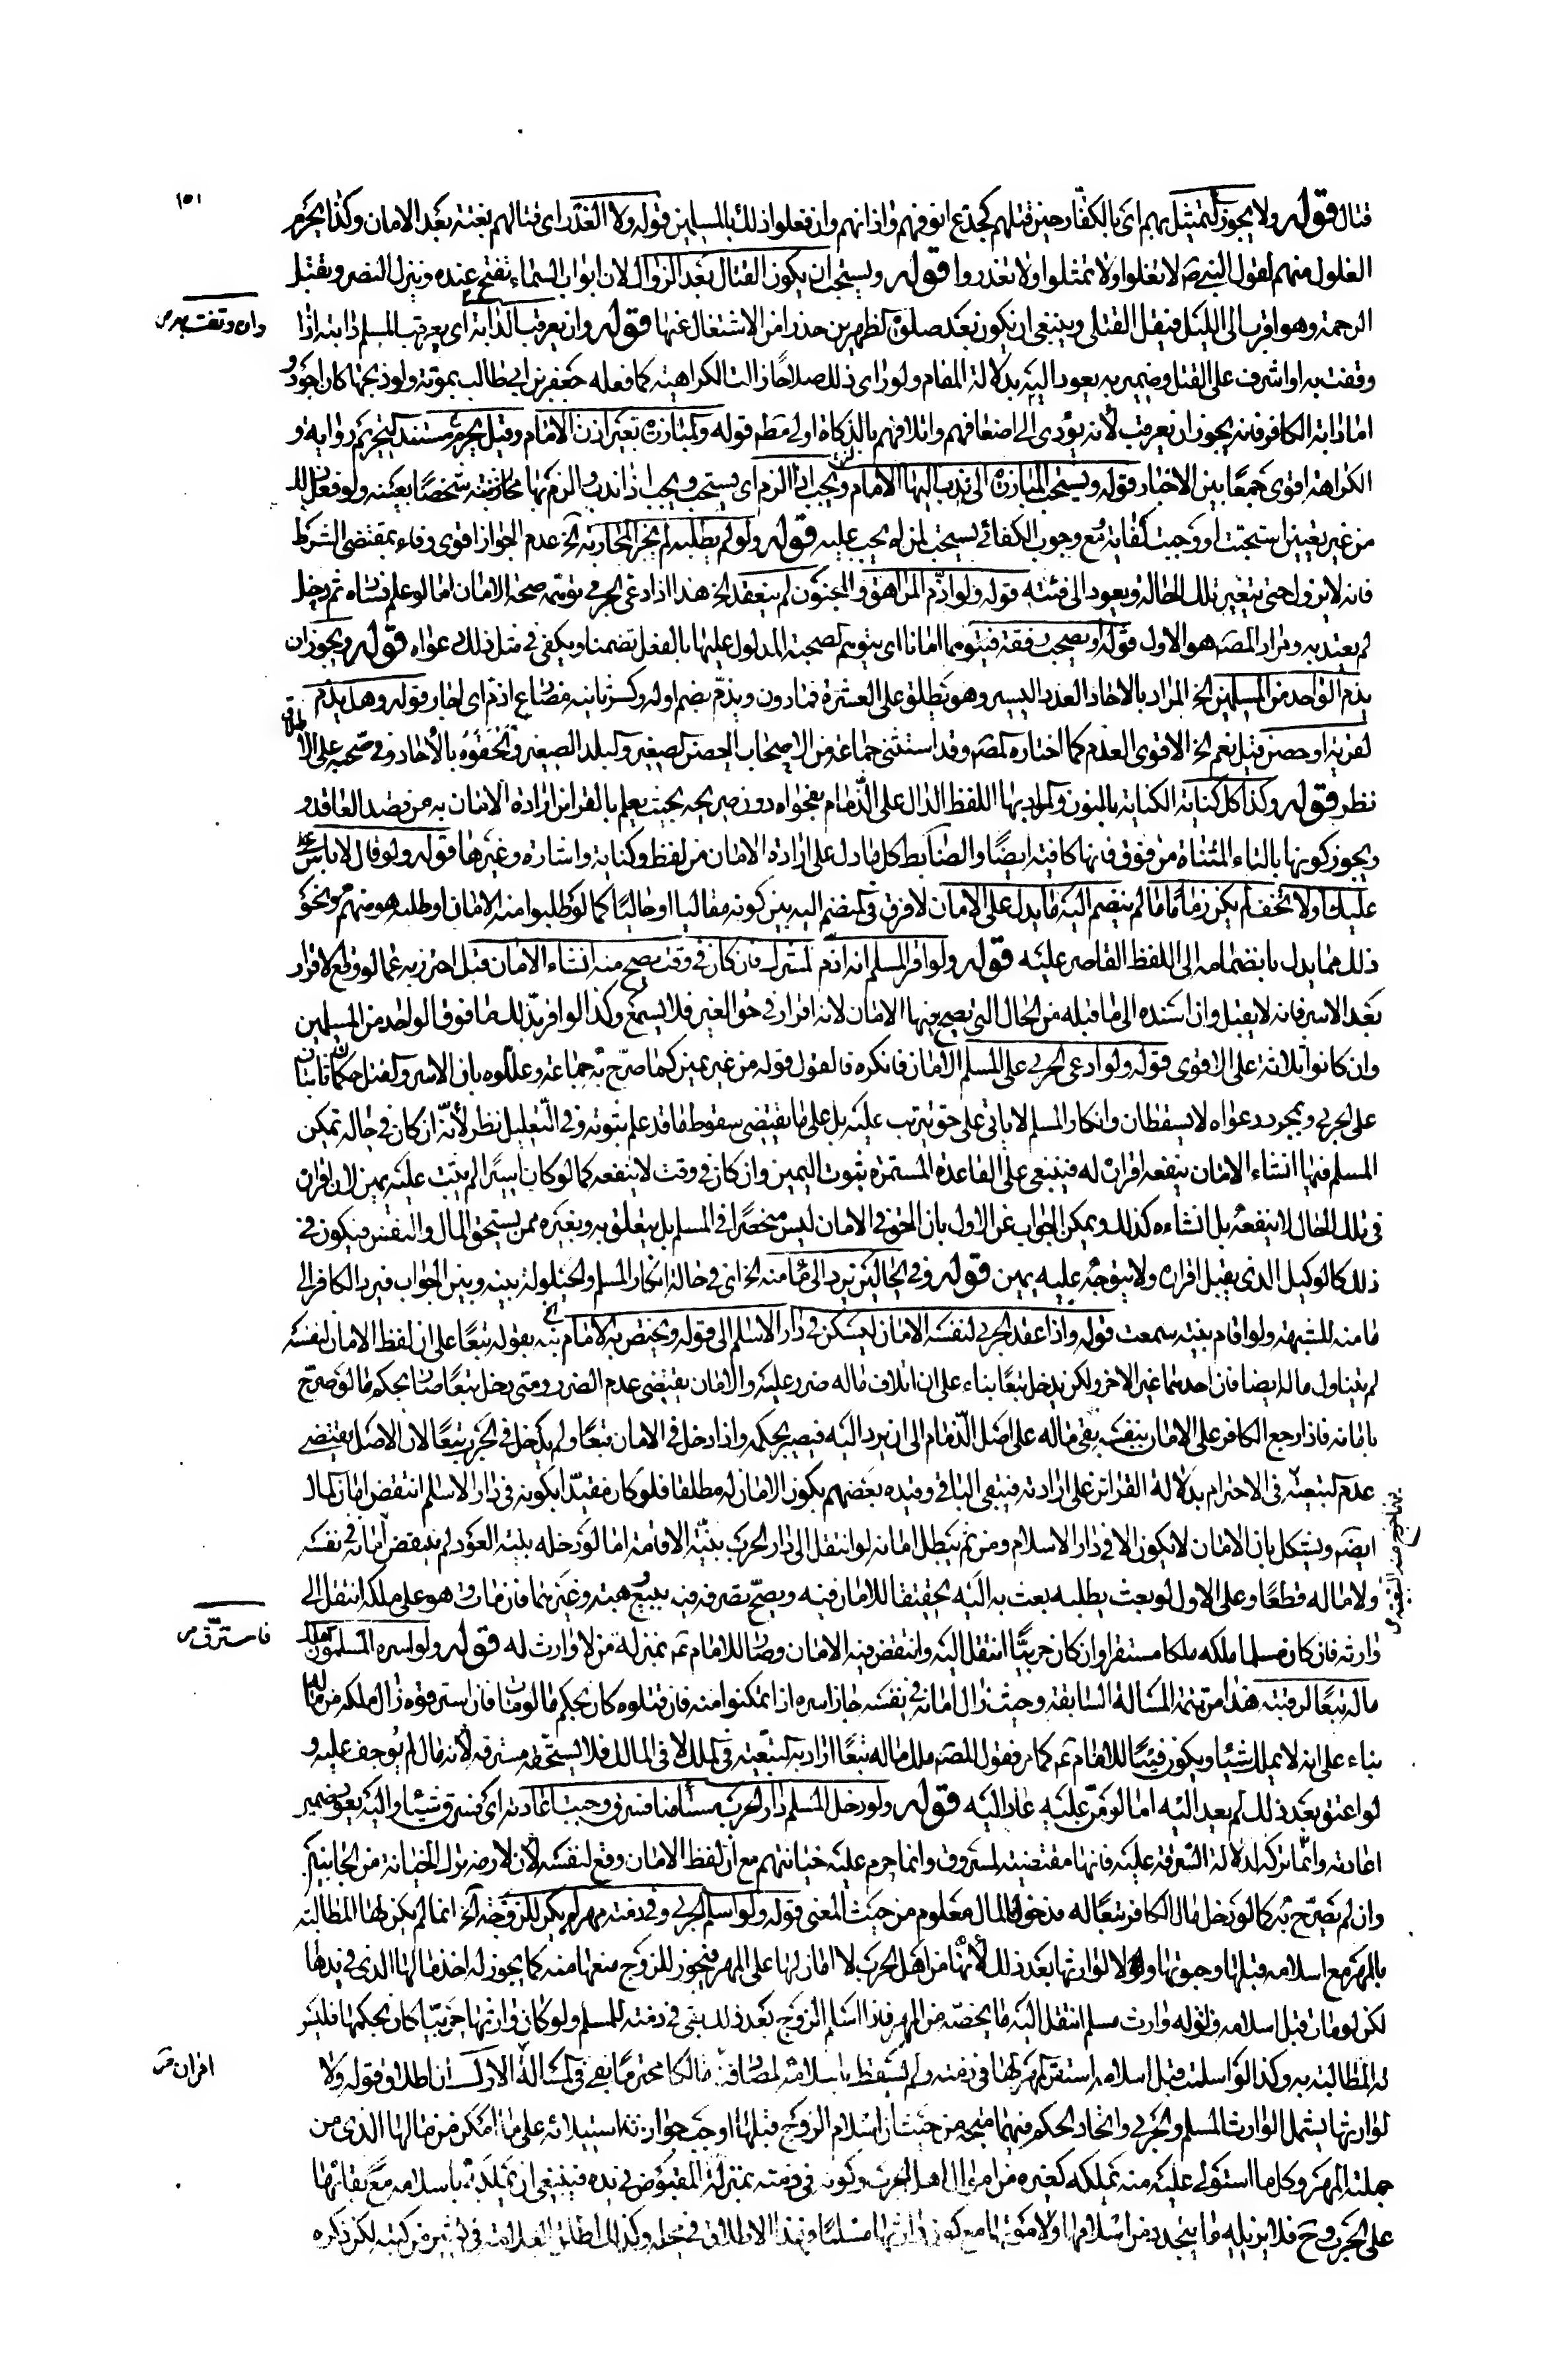 ١٥١
قتال قوله ولا يجوز التمثيل بهم اى بالكفار حين قتلهم كجدع انوفهم واذانهم وان فعلوا ذلك بالمسلمين قوله ولا الغدر اى قتالهم بغتة بعد الامان وكذا يحرم
الغلول منهم لقول النبي ص لا تغلوا ولا تمثلوا ولا تغدروا قوله ويستحب ان يكون القتال بعد الزوال لان ابواب السماء تفتح عنده وينزل النصر ويقبل
الرحمة وهو اقرب الى الليل فيقل القتلى وينبغي ان يكون بعد صلوة الظهرين حذرا من الاشتغال عنها قوله وان يعرقب الدابة اى يعرقب المسلم دابته اذا
وان وقفت به ص
وقفت به او اشرف على القتل وضمير به يعود اليه بدلالة المقام ولو راى ذلك صلاحا زالت الكراهية كما فعله جعفر بن ابي طالب بموتة ولو ذبحها كان اجود و
اما دابة الكافر فانه يجوز ان يعرقب لانه يؤدى الى اضعافهم واتلافهم بالذكاة اولى مطم قوله والمبارزة بغير اذن الامام وقيل يحرم مستند التحريم رواية و
الكراهة اقوى جمعا بين الاخبار قوله ويستحب المبارزة الى ندب اليها الامام ويجب اذا الزم اى يستحب ويجب اذا ندب والزم بها شخصا بعينه ولو فعل ذلك
من غير تعيين استحبت او وجبت كفاية قوله ولو لم يطلبه لم يجز المحاربة الخ عدم الجواز اقوى وفاء بمقتضى الشرط
فانه لا يزول حتى تتغير تلك الحالة ويعود الى فئته قوله ولو اذم المراهق والمجنون لم ينعقد الخ هذا اذا ادعى الحربي توهمه صحة الامان اما لو علم فساده ثم دخل
لم يعتد به ومراد المص هو الاول قوله او يصحب رفقة فيتوهمها امانا اى يتوهم الصحبة المدلول عليها بالفعل تضمنا ويكفى في مثل ذلك دعواه قوله ويجوز ان
يذم الواحد من المسلمين الخ المراد بالاحاد العدد اليسير وهو يطلق على العشرة فما دون ويذم بضم اوله وكسر ثانيه مضارع اذم اى اجار قوله وهل يذم
لقرية او حصن قيل نعم الخ الاقوى العدم كما اختاره المصر وقد استثنى جماعة من الاصحاب الحصن الصغير والبلد الصغير ونحوه بالاحاد وفي صحته على الاطلاق
نظر قوله وكذا كل كناية الكناية بالنون والمراد بها اللفظ الدال على الذمام بفحواه دون صريحه بحيث يعلم بالقرائن ارادة الامان به من قصد العاقد و
ويجوز كونها بالتاء المثناة من فوق فانها كافية ايضا والضابط كل ما دل على ارادة الامان من لفظ وكتابة واشارة وغيرها قوله ولو قال لا باس
عليك او لا تخف لم يكن ذماما ما لم ينضم اليه ما يدل على الامان لا فرق في المنضم اليه بين كونه مقاليا او حاليا كما لو طلبوا منه الامان او طلبه هو منهم ونحو
ذلك مما يدل بانضمامه الى اللفظ القاصر عليه قوله ولو اقر المسلم انه اذم المشرك فان كان في وقت يصح منه انشاء الامان قبل احترز به عما لو وقع الاقرار
بعد الاسر فانه لا يقبل وان اسنده الى ما قبله من الحال التي يصح فيها الامان لانه اقرار في حق الغير فلا يسمع وكذا لو اقر بذلك ما فوق الواحد من المسلمين
وان كانوا ثلاثة على الاقوى قوله ولو ادعى الحربي على المسلم الامان فانكره فالقول قوله من غير يمين كما صرح به جماعة وعللوه بان الاسر والقتل حكمان ثابتان
على الحربي وبمجرد دعواه لا يسقطان وانكار المسلم لا ياتي على حق يترتب عليه بل على ما يقتضي سقوط ما قد علم ثبوته وفي التعليل نظر لانه ان كان في حالة يمكن
المسلم فيها انشاء الامان ينفعه اقراره له فينبغي على القاعدة المستمرة ثبوت اليمين وان كان في وقت لا ينفعه كما لو كان اسيرا لم يثبت عليه يمين لان اقراره
في تلك الحال لا ينفعه بل انشاءه كذلك ويمكن الجواب عن الاول بان الحق في الامان ليس منحصرا في المسلم بل يتعلق به وبغيره ممن يستحق المال والنفس فيكون في
ذلك كالوكيل الذى يقبل اقراره ولا يتوجه عليه يمين قوله وفي الحالين يرد الى مامنه الخ اى في حالة انكار المسلم والحيلولة بينه وبين الجواب فيرد الكافر الى
مامنه للشبهة ولو اقام بينة سمعت قوله واذا عقد الحربي لنفسه الامان ليسكن في دار الاسلام الى قوله ويختص به الامام نبه بقوله تبعا على ان لفظ الامان لنفسه
لم يتناول ماله ايضا فان احدهما غير الاخر ولكن يدخل تبعا بناء على ان اتلاف ماله ضرر عليه والامان يقتضي عدم الضرر ومتى دخل تبعا صار بحكم ما لو صرح
بامانه فاذا رجع الكافر على الامان بنفسه بقي ماله على اصل الذمام الى ان يرد اليه فيصير بحكمه واذا دخل في الامان تبعا ولم يدخل في الحرب تبعا لان الاصل يقتضي
عدم التبعية في الاحترام بدلالة القرائن على ارادته فيبقى الباقي وقيده بعضهم بكون الامان له مطلقا فلو كان مقيدا بكونه في دار الاسلام انتقض امان المال
ايضم ويشكل بان الامان لا يكون الا في دار الاسلام ومن ثم يبطل امانه لو انتقل الى دار الحرب بنية الاقامة اما لو دخله بنية العود لم ينتقض امانه في نفسه
ولا ماله قطعا وعلى الاول لو بعث يطلبه بعث به اليه تحقيقا للامان فيه ويصح تصرفه فيه ببيع وهبة وغيرهما فان مات وهو على ملكه انتقل الى
وارثه فان كان مسلما ملكه ملكا مستقرا وان كان حربيا انتقل اليه وانتقض فيه الامان وصار للامام ثم بمنزلة من لا وارث له قوله ولو اسره المسلمون
فاسترق ص
ماله تبعا لرقبته هذا من تتمة المسالة السابقة وحيث زال امانه في نفسه جاز اسره اذا تمكنوا منه فان قتلوه كان بحكم ما لو مات فان استرقوه زال ملكه من ماله
بناء على انه لا يملك شيئا ويكون فيئا للامام ثم كما مر فقول المصر ملك ماله تبعا اراد به التبعية في الملك لا في المالك فلا يستحقه مسترقه لانه مال لم يوجف عليه و
لو اعتق بعد ذلك لم يعد اليه اما لو من عليه عاد اليه قوله ولو دخل المسلم دار الحرب مستأمنا فسرق وجب اعادته اى فسرق شيئا واليه يعود ضمير
اعادته وانما تركه لدلالة السرقة عليه فانها مقتضية لمسروق وانما حرم عليه خيانتهم مع ان لفظ الامان وقع لنفسه لان لازمه ترك الخيانة من الجانبين
وان لم يصرح به كما لو دخل مال الكافر تبعا له فدخول المال معلوم من حيث المعنى قوله ولو اسلم الحربي وفي ذمته مهر لم يكن للزوجة الخ انما لم يكن لها المطالبة
بالمهر مع اسلامه قبلها وموتها ولا لوارثها بعد ذلك لانها من اهل الحرب لا امان لها على المهر فيجوز للزوج منعها منه كما يجوز له اخذ مالها الذى في يدها
لكن لو مات قبل اسلامه وله وارث مسلم انتقل اليه ما يخصه من المهر فاذا اسلم الزوج بعد ذلك بقي في ذمته للمسلم ولو كان وارثها حربيا كان بحكمها فليس
له المطالبة به وكذا لو اسلمت قبل اسلامه استقر المهر لها في ذمته ولم يسقط باسلامه لمصادفة مالكا محترما بقي في المسالة الاولى ان اطلاق قوله ولا
اقران ص
لوارثها يشمل الوارث المسلم والحربي واتحاد الحكم فيهما متجه من حيث ان اسلام الزوج قبلها اوجب جواز استيلائه على ما امكن من مالها الذى من
جملته المهر وكل ما استولى عليه منه يملكه كغيره من اموال اهل الحرب وكونه في ذمته بمنزلة المقبوض في يده فينبغي ان يملكه باسلامه مع بقائها
على الحرب وح فلا يزيله ما يتجدد من اسلامها ولا موتها مع كون وارثها مسلما وهذا الاطلاق في محله وكذلك اطلق العلامة في كثير من كتبه لكن ذكره